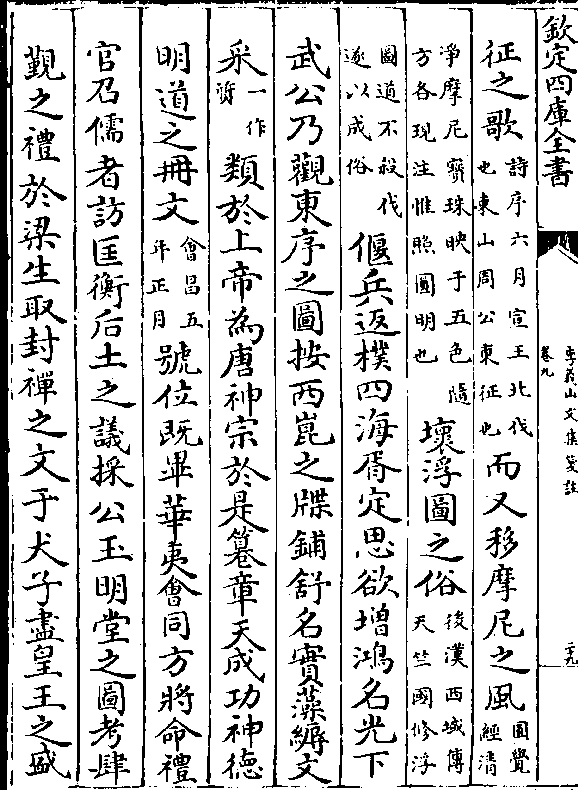 欽定四庫全書
李義山文集箋註
卷九
二十九
征之歌詩序六月宣王北伐也東山周公東征也而又移摩尼之風圓覺經清
淨摩尼寶珠映于五色隨方各現注惟照圓明也壞浮圖之俗後漢西域傳天竺國修浮
圖道不殺伐遂以成俗偃兵返樸四海胥定思欲增鴻名光下
武公乃觀東序之圖按西崑之牒鋪舒名實藻縟文
采一作質類於上帝為唐神宗於是篹章天成功神德
明道之冊文會昌五年正月號位既畢華夷會同方將命禮
官召儒者訪匡衡后土之議採公玉明堂之圖考肆
覲之禮於梁生取封禪之文于犬子盡皇王之盛